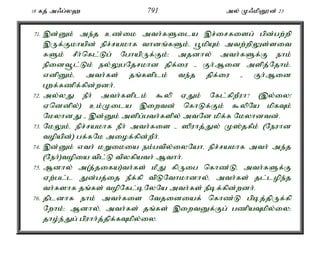 18 கத் அஃப்லஹ 791 அல் முஃமினூன் 23
71. இன்னும் அந்த உண்மை அவர்களுடைய இச்சைகளைப் பின்பற்றி
இருக்குமாயின் நிச்சயமாக வானங்களும், பூமியும் அவற்றிலுள்ளவை
களும் சீர்கெட்டுப் போயிருக்கும்; அதனால் அவர்களுக்கு நாம்
நினைவூட்டும் நல்லுபதேசமான திக்ரை - குர்ஆனை அளித்தோம்.
எனினும், அவர்கள் தங்களிடம் வந்த திக்ரை - குர்ஆனை
புறக்கணிக்கின்றனர்.
72. அல்லது நீர் அவர்களிடம் கூலி ஏதும் கேட்கிறீரா? (இல்லை!
ஏனெனில்) உம்முடைய இறைவன் கொடுக்கும் கூலியே மிகவும்
மேலானது , இன்னும் அளிப்பவர்களில் அவனே மிக்க மேலானவன்.
73. மேலும், நிச்சயமாக நீர் அவர்களை - ஸிராத்துல் முஸ்தகீம் (நேரான
வழியின்) பக்கமே அழைக்கின்றீர்.
74. இன்னும் எவர் மறுமையை நம்பவில்லையோ, நிச்சயமாக அவர் அந்த
(நேர்)வழியை விட்டு விலகியவர் ஆவார்.
75. ஆனால் அ(த்தகைய)வர்கள் மீது கிருபை கொண்டு, அவர்களுக்கு
ஏற்பட்ட துன்பத்தை நீக்கி விடுவோமானால், அவர்கள் தட்டழிந்த
வர்களாக தங்கள் வழிகேட்டிலேயே அவர்கள் நீடிக்கின்றனர்.
76. திடனாக நாம் அவர்களை வேதனையைக் கொண்டு பிடித்திருக்கி
றோம்; ஆனால், அவர்கள் தங்கள் இறைவனுக்குப் பணியவுமில்லை;
தாழ்ந்துப் பிரார்த்திக்கவுமில்லை.